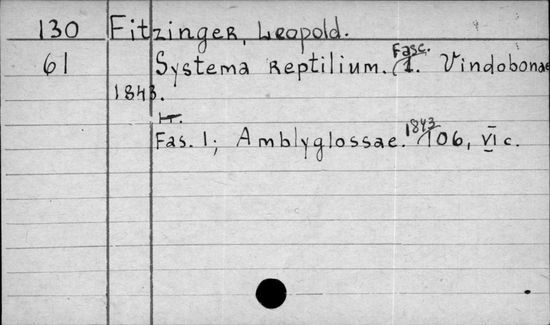 130 Fitzinger, Leopold.
61 Systema Reptilium. Fasc. 1. Vindobonae
1843.
Fas. 1; Amblyglossae. 1843 106, VI c.